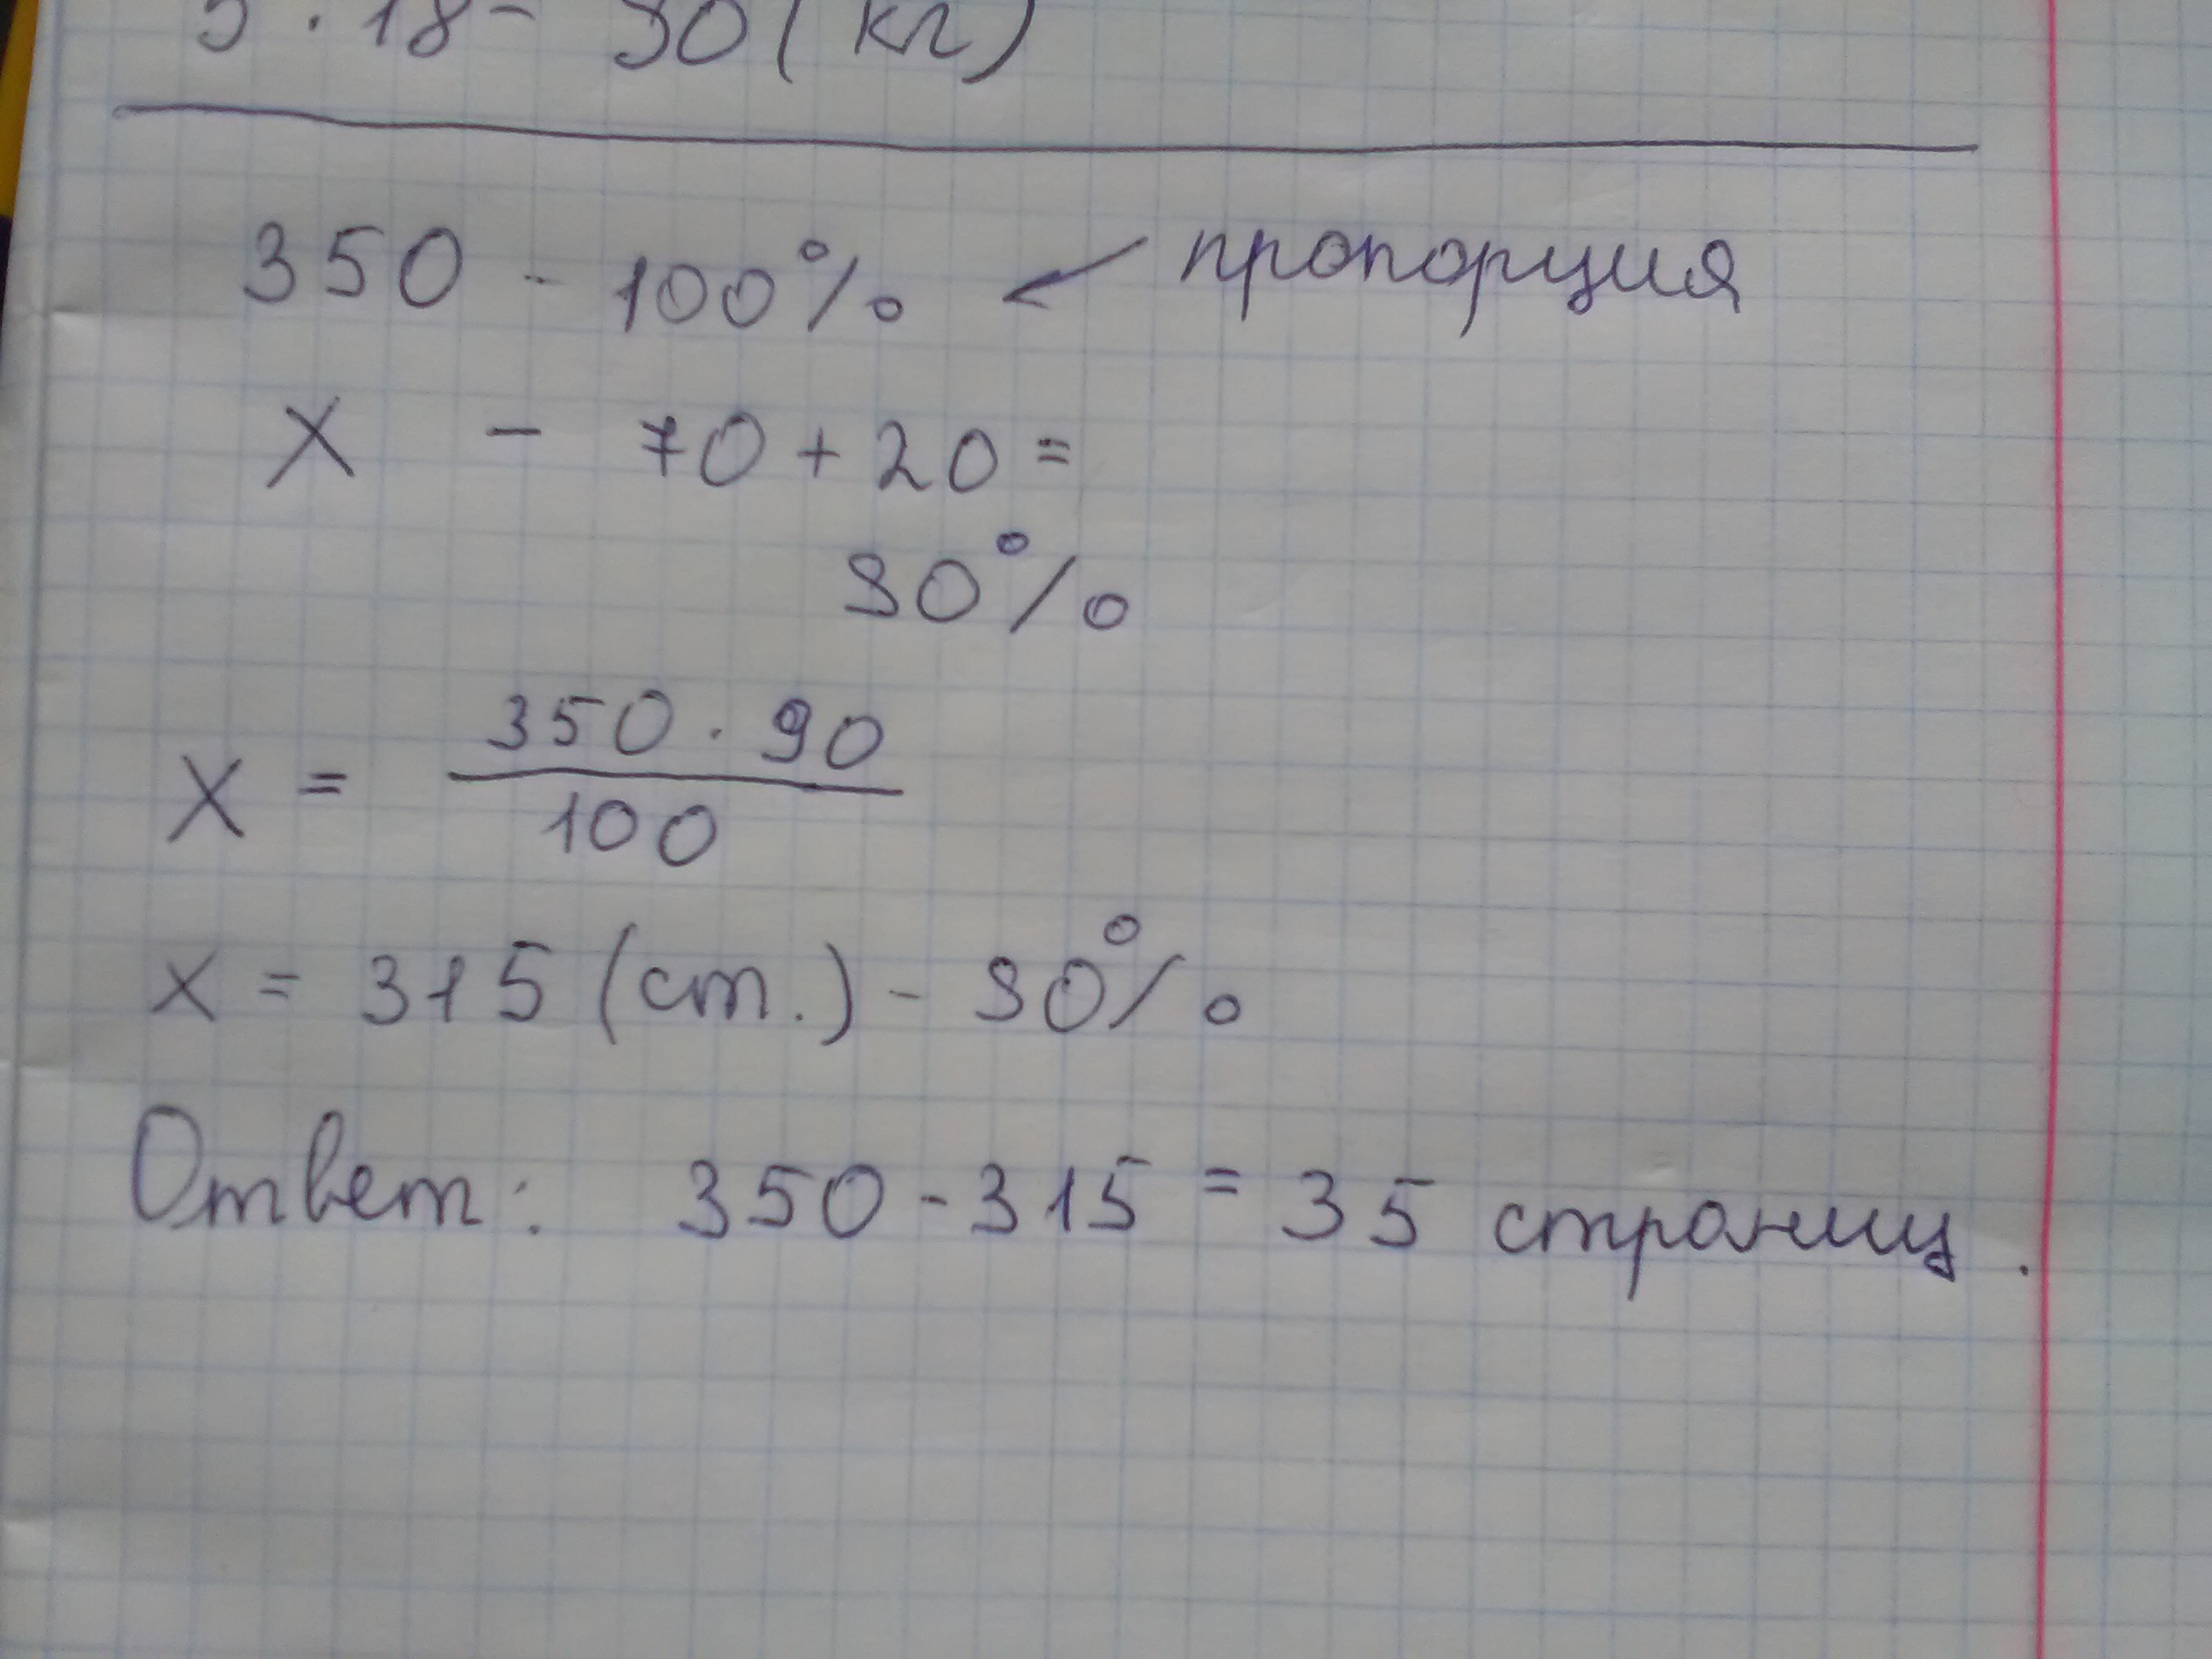 5 · 18 = 90 (кг)
350 - 100% ← пропорция
x - 70 + 20 =
90%
x = 350 · 90 / 100
x = 315 (ст.) - 90%
Ответ: 350 - 315 = 35 страниц.